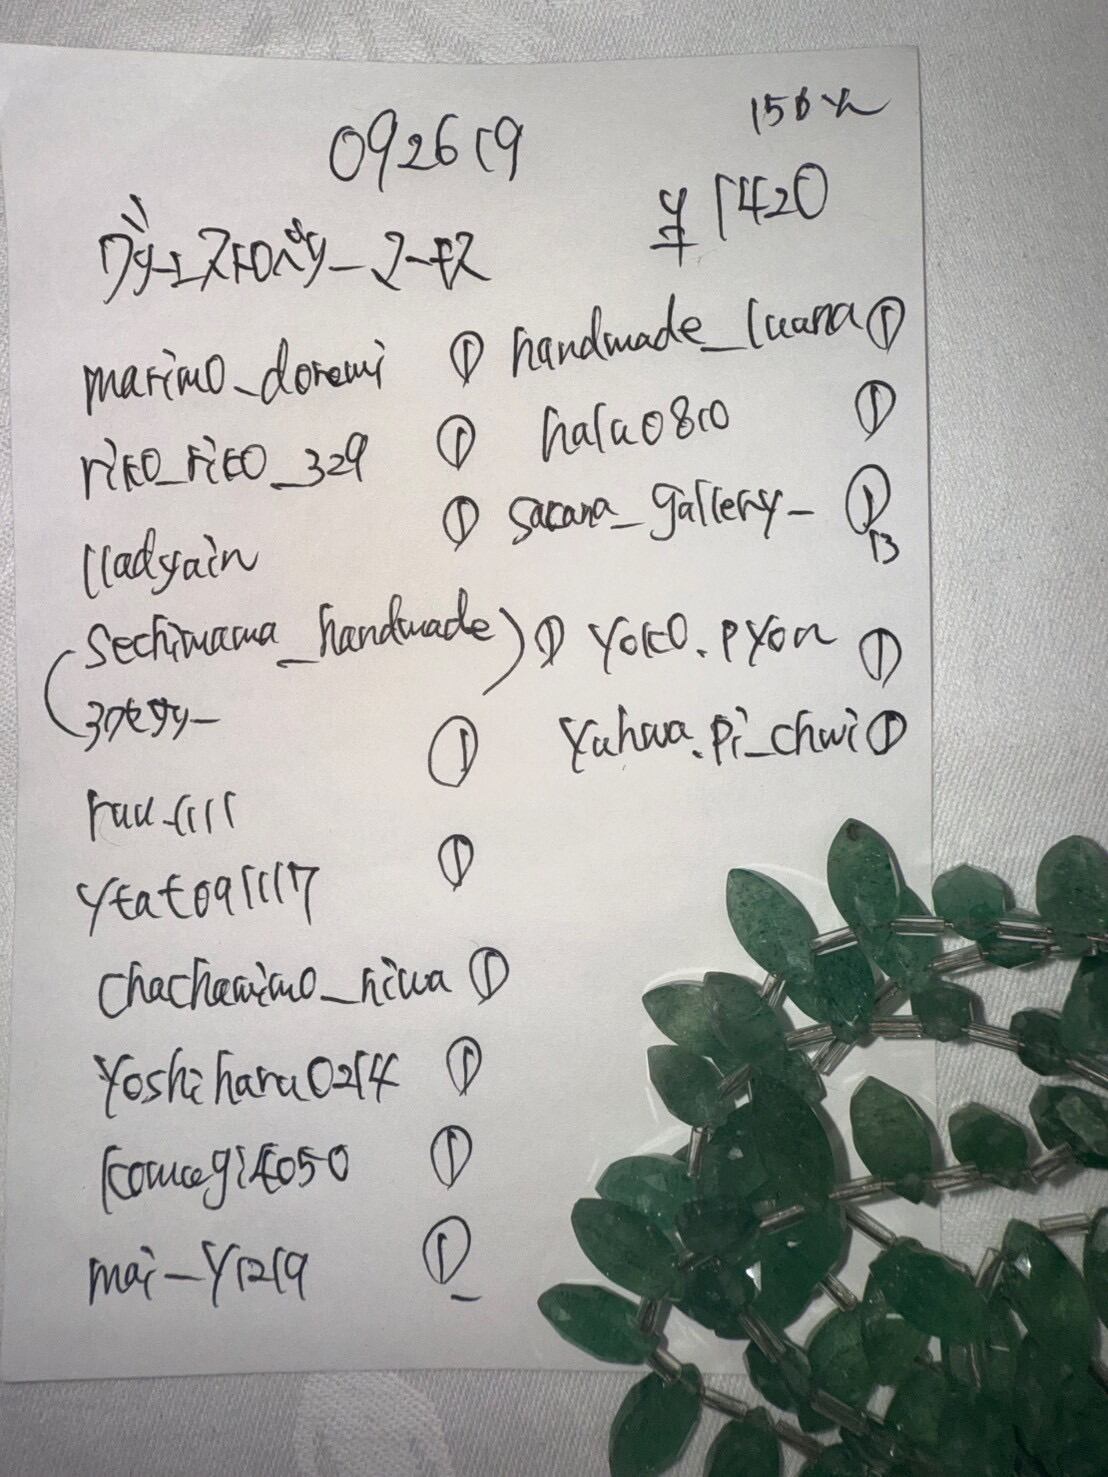 092619
15本入
¥1420
グリーンストロベリーマーキス
marimo_doremi ①
riko_riko_329 ①
lladyain ①
(sechimama_handmade) ①
ruu_1111 ①
ytat091117 ①
chachamimo_niwa ①
Yoshiharu0214 ①
komugi4050 ①
mai_y1219 ①
handmade_luana ①
halu0810 ①
sacana_gallery_ ①
13
yoko.pyon ①
yuhwa.pi_chwi ①